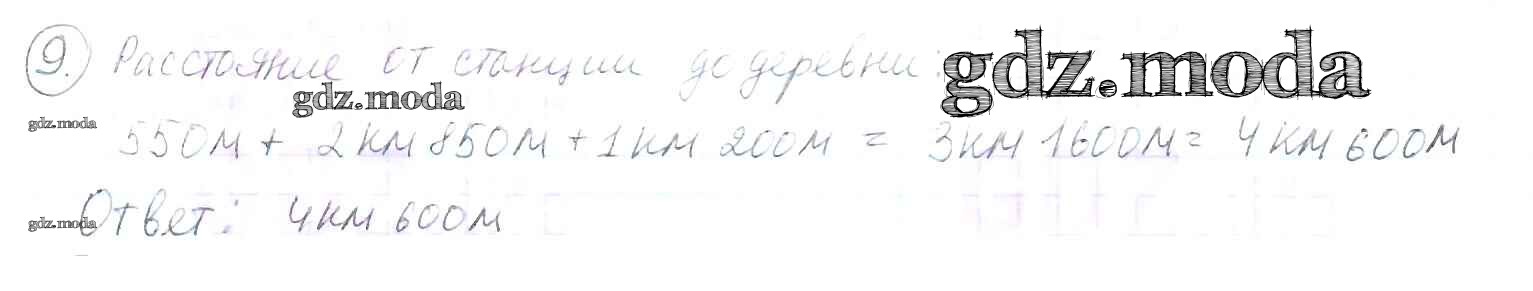 9. Расстояние от станции до деревни:
gdz.moda
gdz.moda
gdz.moda
550м + 2км 850м + 1км 200м = 3км 1600м = 4км 600м
gdz.moda
Ответ: 4км 600м